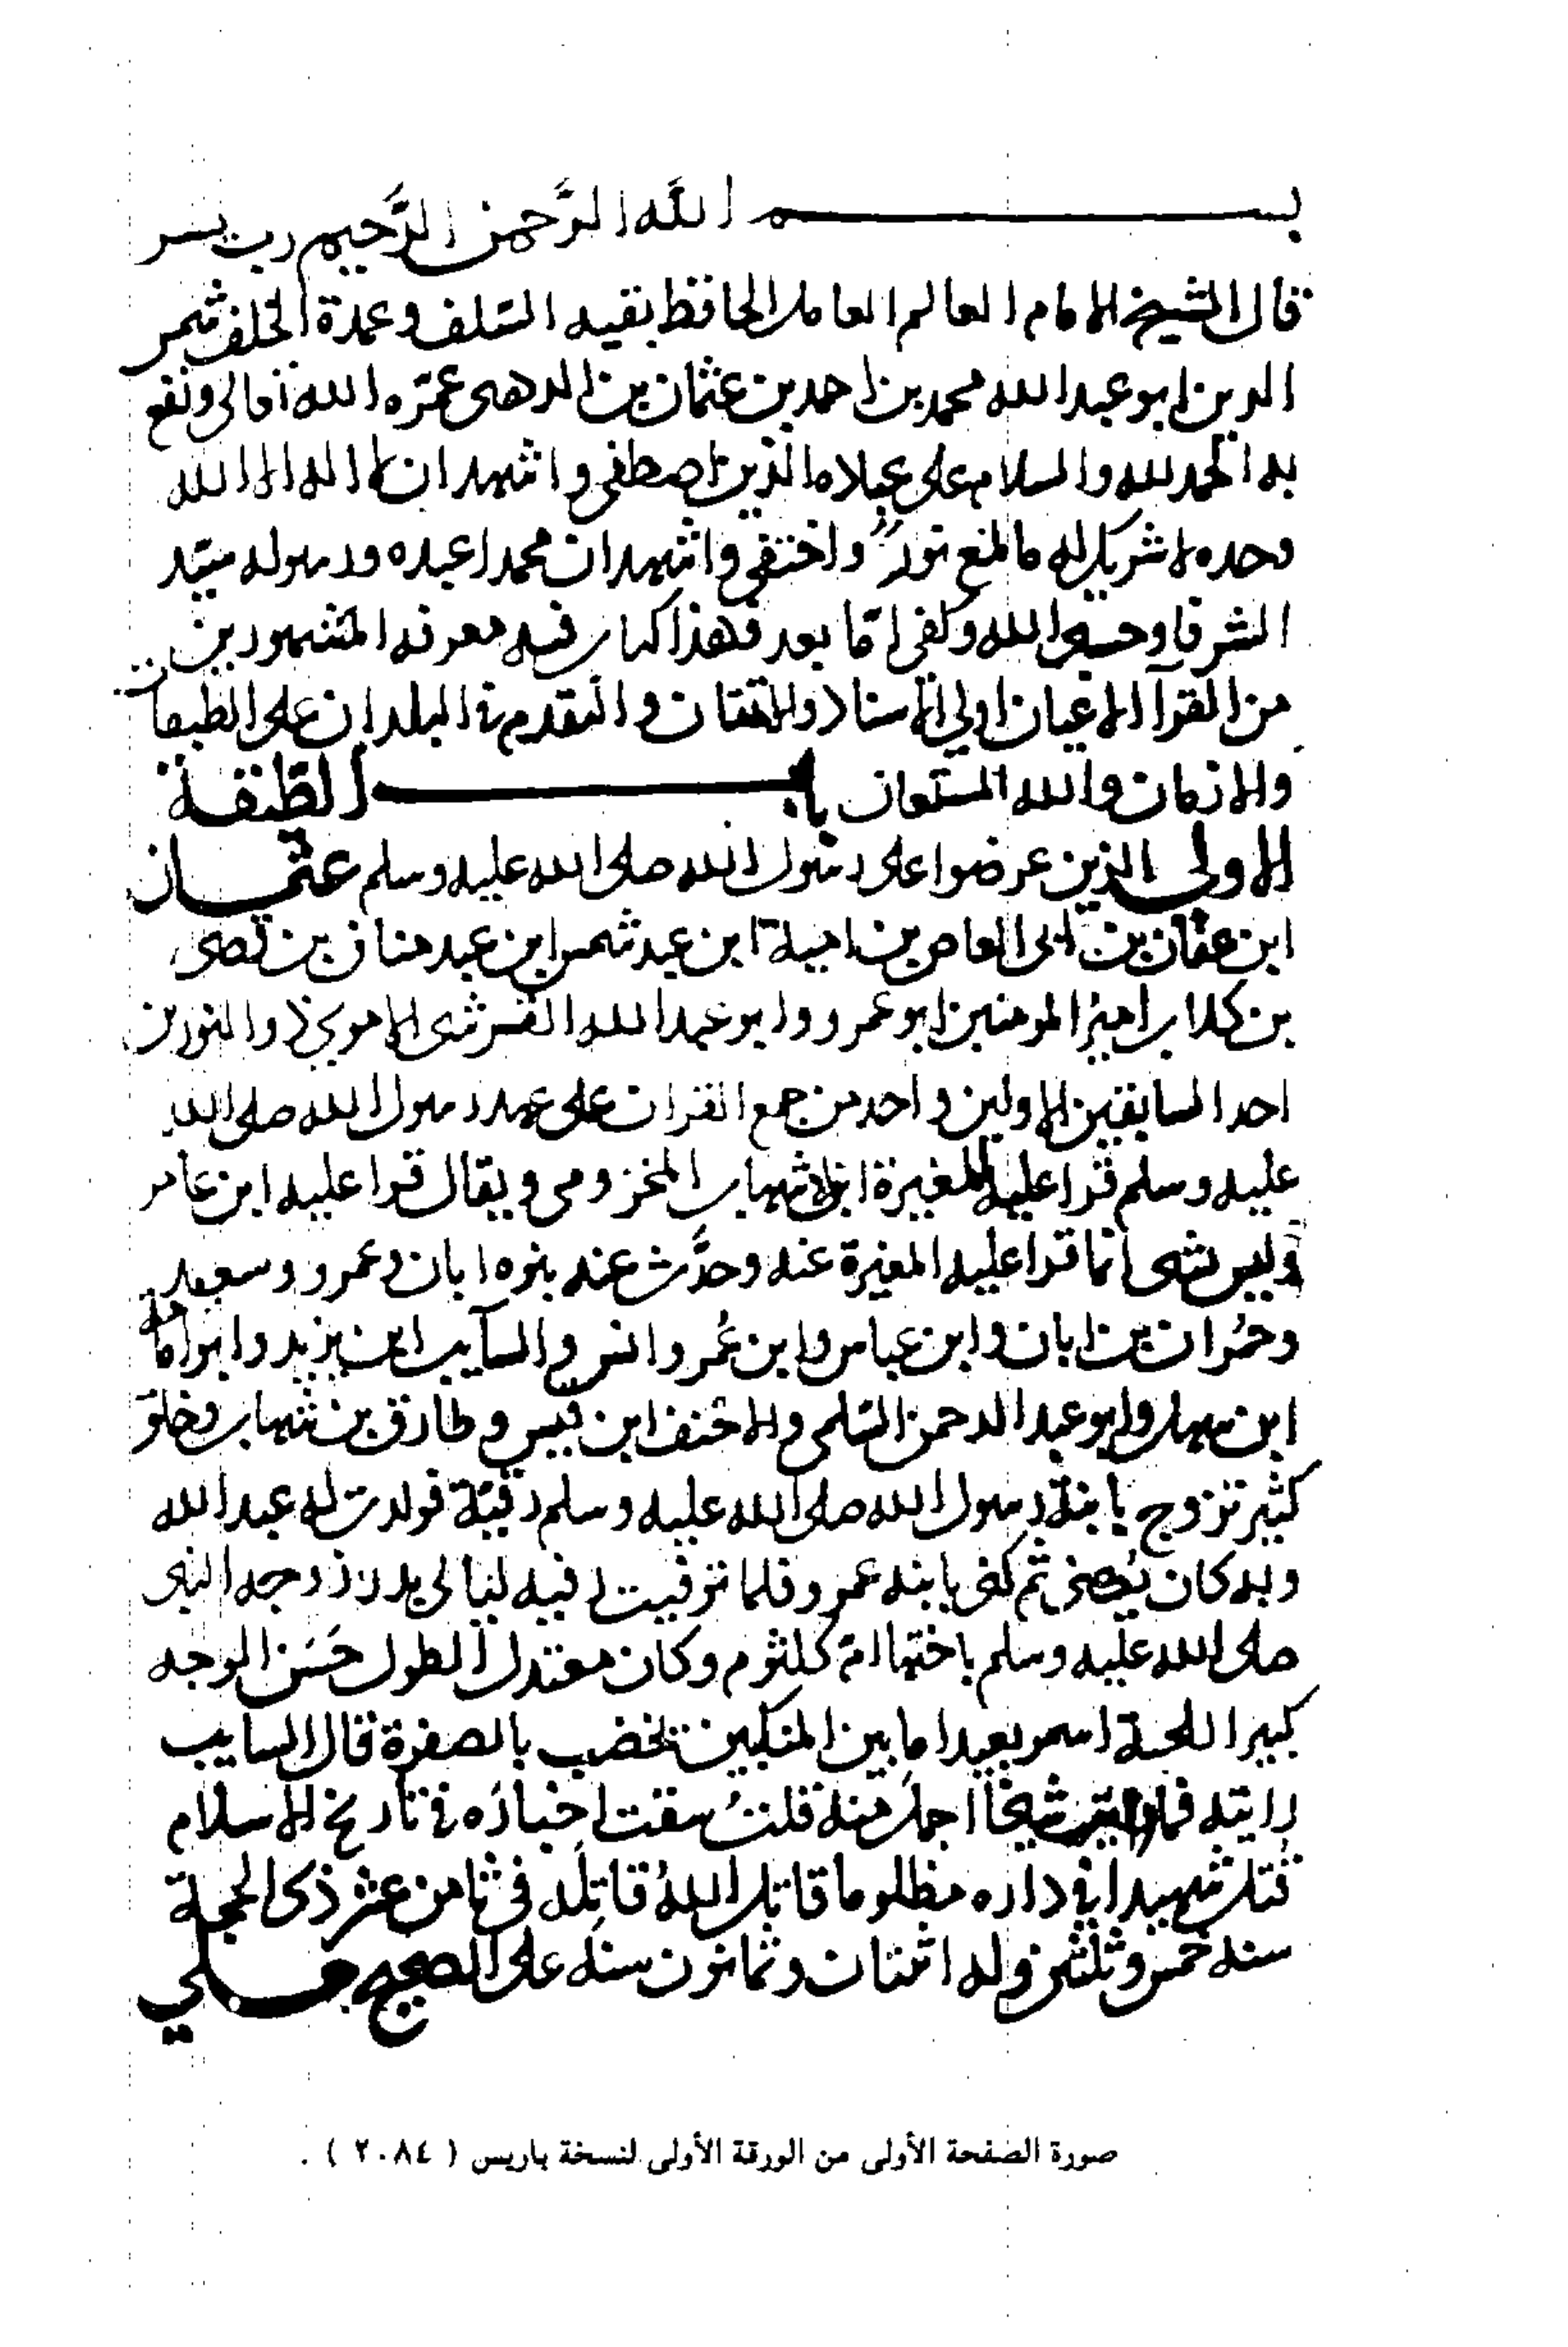 بسم الله الرَّحمن الرَّحيم رب يسر
قال الشيخ الامام العالم العامل الحافظ بقيه السّلف وعمدة الخلف شمس
الدين ابو عبد الله محمد بن احمد بن عثمان بن الذهبى عمّره الله تعالى ونفع
به الحمد لله والسلام على عباده الذين اصطفى واشهد ان لا اله الا الله
وحده لا شريك له واختفى واشهد ان محمدا عبده ورسوله سيّد
الشرفا وحسبى الله وكفى امّا بعد فهذا كتاب فيه معرفه المشهورين
من القرآ الاعيان اولي الاسناد والاتقان والتقدم في البلدان على الطبقات
والازمان والله المستعان باب الطّبقة
الاولى الذين عرضوا على رسول الله صلى الله عليه وسلم عثمان
ابن عفان بن ابى العاص بن امية ابن عبد شمس ابن عبد مناف بن قصى
بن كلاب امير المومنين ابو عمرو وابو عبد الله القرشى الاموي ذو النورين
احد السابقين الاولين واحد من جمع القران على عهد رسول الله صلى الله
عليه وسلم قرا عليه المغيرة ابن شهاب المخزومى ويقال قرا عليه ابن عامر
وليس بشى انما قرا عليه المغيرة عنه وحدَّث عنه بنوه ابان وعمرو وسعيد
وحُمران بن ابان وابن عباس وابن عُمر وانس والسآيب ابن يزيد وابو امامة
ابن سهل وابو عبد الرحمن السّلمى والاحنف ابن قيس وطارق بن شهاب وخلق
كثير تزوج بابنة رسول الله صلى الله عليه وسلم رقيّة فولدت له عبد الله
وبه كان يُكنى ثم كنى بابنه عمرو فلما توفيت رقيه ليالى بدر زوجه النبى
صلى الله عليه وسلم باختها امّ كلثوم وكان معتدل الطول حَسَن الوجه
كبير اللحية اسمر بعيد ما بين المنكبين يخضب بالصفرة قال السايب
رايته فما رايت شيخا اجمل منه قلتُ سقت اخبارَه في تاريخ الاسلام
قُتل شهيدا في داره مظلوما قاتل اللهُ قاتِلَه في ثامن عشر ذى الحجة
سنه خمس وثلثين وله اثنتان وثمانون سنه على الصحيح علي
صورة الصفحة الأولى من الورقة الأولى لنسخة باريس ( ٢٠٨٤ ) .